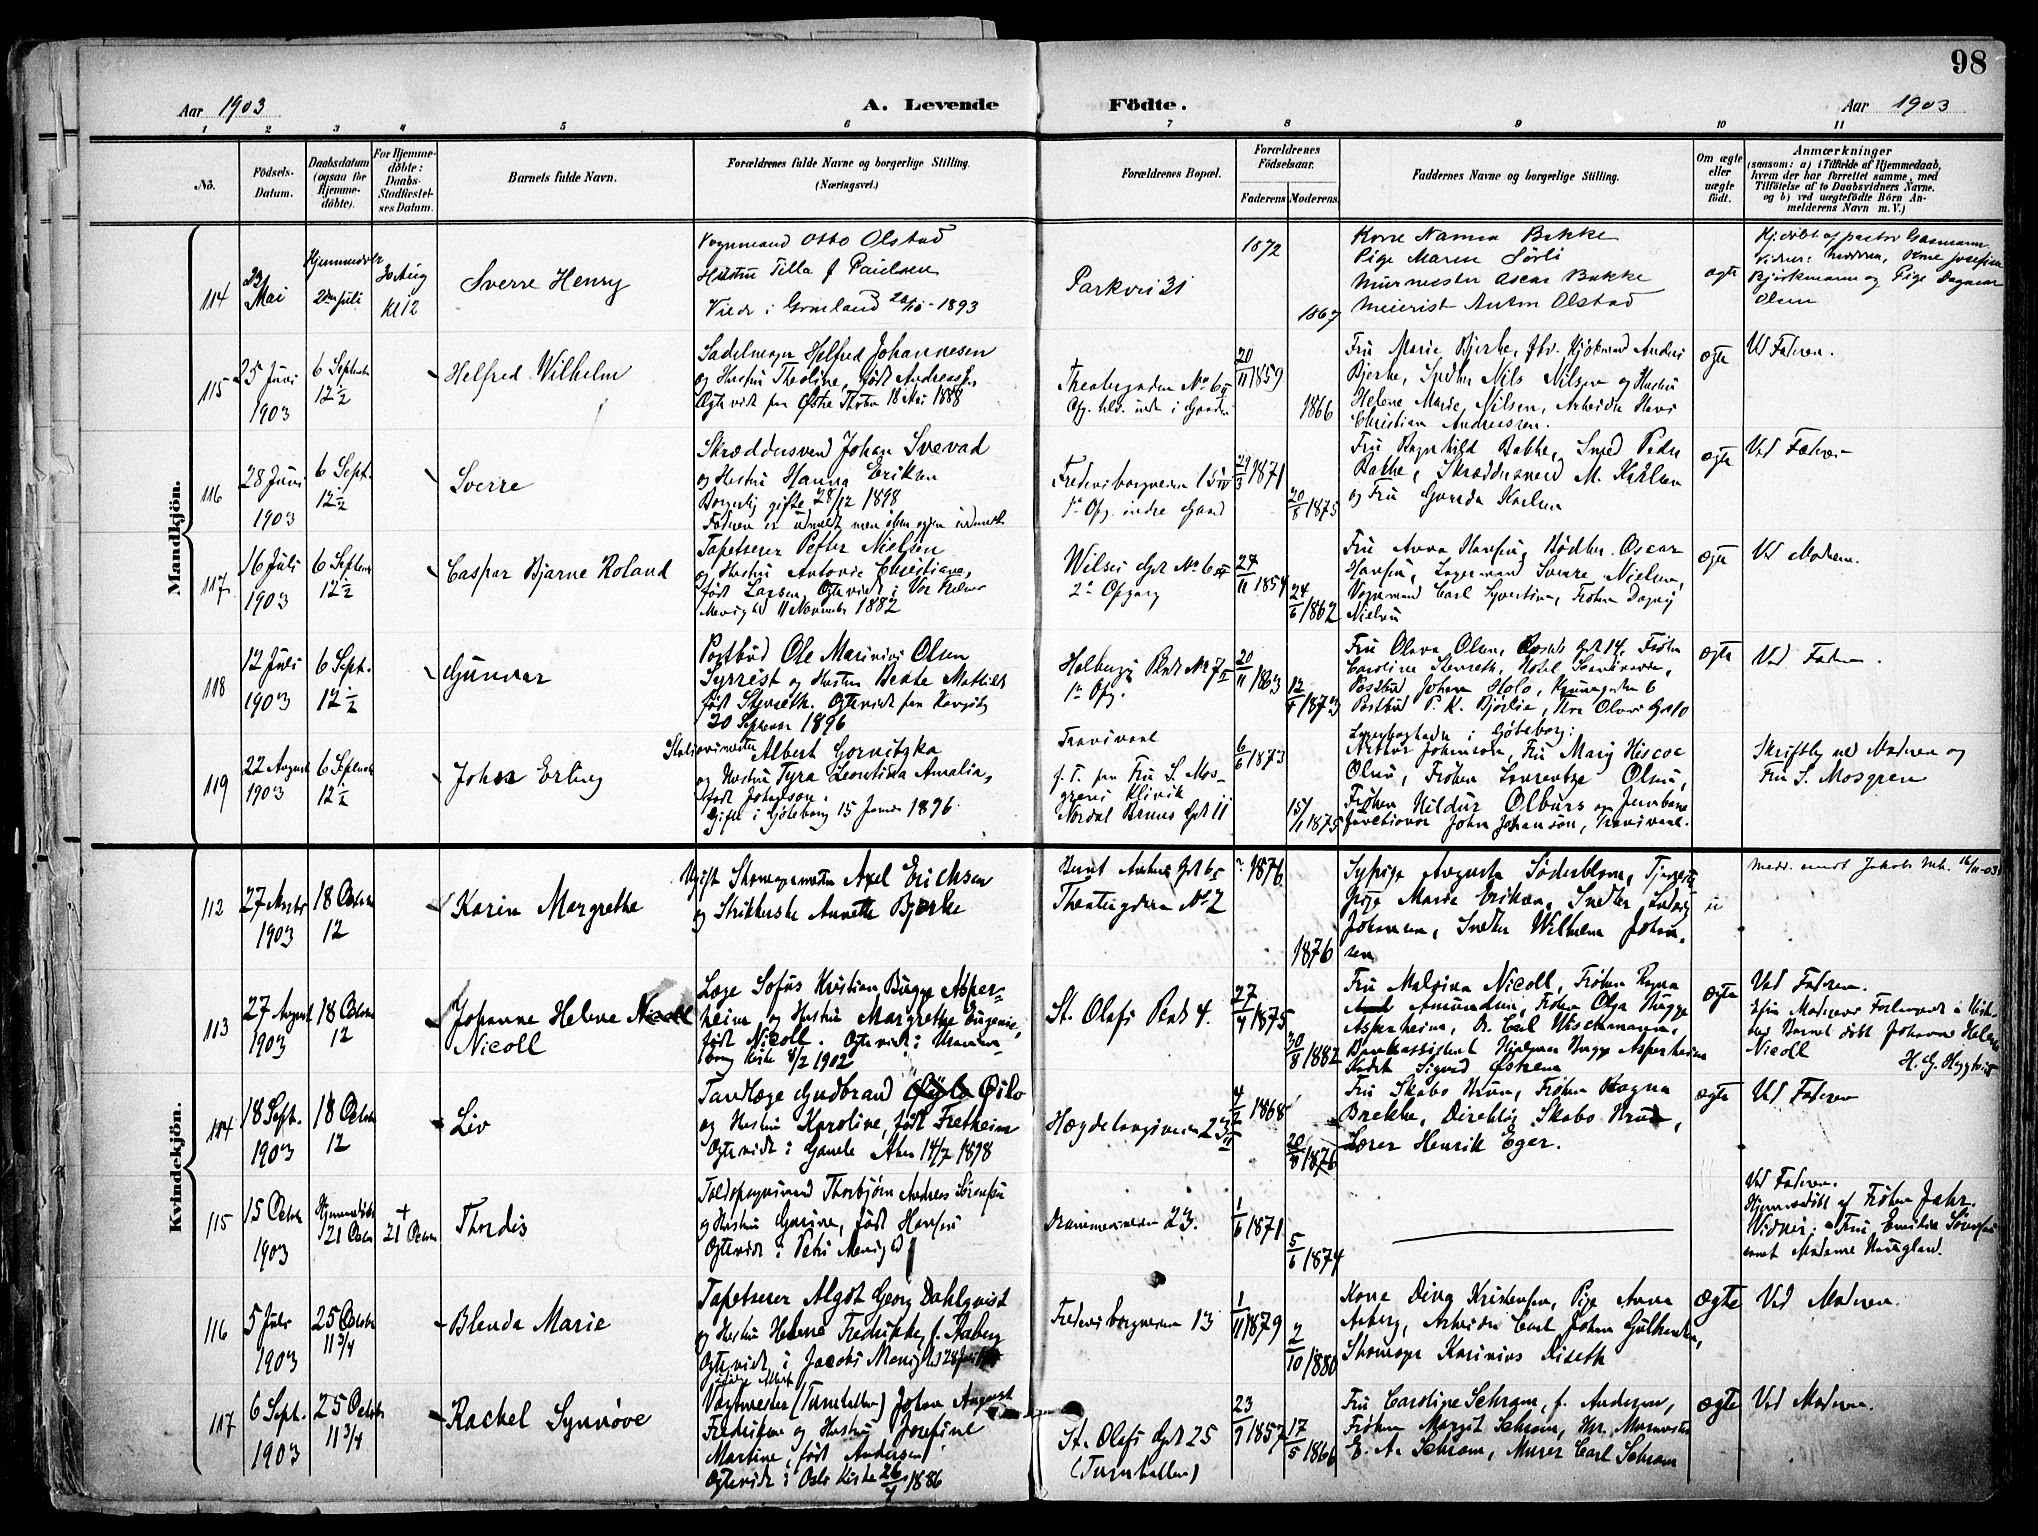 98
Aar 1903
A. Levende Födte.
Aar 1903
1 2 3 4 5 6 7 8 9 10 11
No.
Födsels-Datum.
Daabsdatum (ogsaa för Hjemme-döbte).
For Hjemme-döbte: Daabs-Stadfæstel-ses Datum.
Barnets fulde Navn.
Forældrenes fulde Navne og borgerlige Stilling.
(Næringsvei.)
Forældrenes Bopæl.
Forældrenes Födselsaar.
Faderens Moderens
Faddernes Navne og borgerlige Stilling.
Om ægte eller uægte födt.
Anmærkninger
(saasom: a) i Tilfælde af Hjemmedaab, hvem der har forrettet samme, med Tilföielse af to Daabsvidners Navne, og b) ved uægtefödte Börn An-melderens Navn m. V.)
Mandkjön.
114
23 Mai
Hjemmedøbt
2den juli
30 Aug
Kl 12
Sverre Henry
Vognmand Otto Olstad
Hustru Tilla f Paulsen
Viede i Grønland 1893
Parkvei 31
1872
1867
Kone Namna Bakke
Pige Maren Sørli
Murmester Oscar Bakke
Meierist Anton Olstad
ægte
Hj.døbt af pastor
Bjørkmann og Pige Dagmar
Olsen
115
25 Juni
1903
6 Septbr
12½
Helfred Wilhelm
Sadelmager Helfred Johannesen
og Hustru Theoline, født Andreassen
Ægteviet paa Østre Thoten 18 Mai 1888
Theatergaden No 6
Opg. tilv. inde i Gaarden
20/11 1859
1866
Fru Marie Bjerke,
Bjerke, Snedker Nils Nilsen og Hustru
Helene Marie Nilsen, Arbeider Hans
Christian Andreassen.
ægte
Ved Faderen.
116
28 Juni
1903
6 Sept.
12½
Sverre
Skræddersvend Johan Svevad
og Hustru Hanna Eriksen
Borgerlig gifte 28/12 1898
Faderen er udmeldt men
Fredensborgveien 15
1' Opg. indre Gaard
29/3 1871
20/8 1875
Fru Ragnhild Bakke, Smed Peder
Bakke, Skræddersvend M. Karlsen
og Fru Gunda Karlsen
ægte
Ved Faderen
117
16 Juli
1903
6 Septbr
12½
Caspar Bjarne Roland
Tapetserer Petter Nielsen
og Hustru Antonie Christiane,
født Larsen. Ægteviet i Vor Frelser
Menighed 11 November 1882
Wilses Gd No 6
2' Opgang
24/11 1854
24/6 1862
Fru Anna Hansen, Bødker Oscar
Hansen, Lagermand Sverre Nielsen,
Vognmand Carl Syvertsen, Frøken Dagny
Nielsen
ægte
Ved Moderen.
118
12 Juli
1903
6 Sept.
12½
Gunvar
Postbud Ole Marinius Olsen
Tyrrist og Hustru Beate Mathilde
født Stenseth. Ægteviet paa
20 September 1896
Holbergs Plads No 7
1' Opg.
20/11 1863
12/4 1873
Fru Olava Olsen, Gd 14, Frøken
Caroline Stenseth, Hotel Scandinavie,
Postbud Johan Holo, 6
Postbud P. K. Bjørlie, Gd 10
ægte
Ved Faderen.
119
22 August
1903
6 Septemb
12½
Johan Erling
Stationsmester Albert Gornitzka
og Hustru Tyra Leontina Amalia,
født Johanson.
Gifte i Göteborg 15 Januar 1896
f. T. paa Fru S. Mos-
grens Klinik
Nordal Bruns Gd 11
6/6 1873
15/11 1875
i Göteborg:
Arthur Johanson, Fru Mary Hiscoe
Olsen, Frøken Laurentze Olsen,
Frøken Hildur Olburs og Jernbane
John Johanson,
Skriftlig ved Moderen og
Fru S. Mosgren
Kvindekjön.
112
27
1903
18 Octobr
12
Karin Margrethe
Ugift Axel Erichsen
og Strikkerske Annette Bjerke
Theatergaden No 2
1876
1876
Sypige Augusta Söderblom, Tjeneste
pige Marie Eriksen, Snedker Ludvig
Johansen, Snedker Wilhelm Johan-
sen
u
113
27 August
1903
18 Octobr
12
Johanne Helene Nicoll
Nicoll
Læge Sofus Kristian Bugge Asper-
heim og Hustru Margrethe Eugenie,
født Nicoll. Ægteviet i
Kirke 8/2 1902
St. Olafs Plads 4.
27/4 1875
30/8 1882
Fru Malvina Nicoll, Frøken Ragna
Amundsen, Frøken Olga Bugge
Asperheim, Dr. Carl Wischmann,
Bankassistent Hjalmar Bugge Asperheim
Kadet Sigurd Østrem
ægte
Ved Faderen.
Efter Moderens Forlangende i
Barnet døbt Johanne Helene
Nicoll
H. G. Hagtvedt
114
18 Sept.
1903
18 Octobr
12
Liv
Tandlæge Gudbrand Øilo
og Hustru Karoline, født Fretheim
Ægteviet i Gamle Aker 14/7 1898
Hægdehaugsveien 23
4/2 1868
20/8 1876
Fru Skabo Brun, Frøken Ragna
Brekke, Direktør Skabo Brun,
Lærer Henrik Eger.
ægte
Ved Faderen
115
15 Octobr
1903
Hjemmedøbt
21 Octbr
+
21 Octobr
Thordis
Toldopsynsmand Thorbjørn Andreas Sørensen
og Hustru Gurine, født Hansen
Ægteviet i Petri Menighed
Drammensveien 23.
1/6 1871
5/6 1874
Ved Faderen.
Hjemmedøbt af Frøken Jahr.
Vidner: Fru Emilie Sørensen
samt Madame Haugland.
116
5 Juli
1903
25 Octobr
11 3/4
Blenda Marie
Tapetserer Algot Georg Dahlqvist
og Hustru Helene Fredrikke, f. Aaberg
Ægteviet i Jacobs Menighed
Fredensborgveien 13
1/11 1879
2/10 1880
Kone Dina Kristensen, Pige Anna
Aaberg, Arbeider Carl Johan Gulbrandsen,
Skomager Karinius Riseth
ægte
Ved Moderen.
117
6 Sept.
1903
25 Octobr
11 3/4
Rachel Synnøve
Vagtmester (Turnhallen) Johan August
Fredriksen og Hustru Josefine
Martine, født Andersen
Ægteviet i Oslo Kirke 26/4 1886
St. Olafs Gd 25
(Turnhallen)
23/9 1857
17/5 1866
Fru Caroline Schram, f. Andersen,
Frøken Margit Schram, Hr. Murmester
E. A. Schram, Murer Carl Schram
ægte
Ved Moderen.